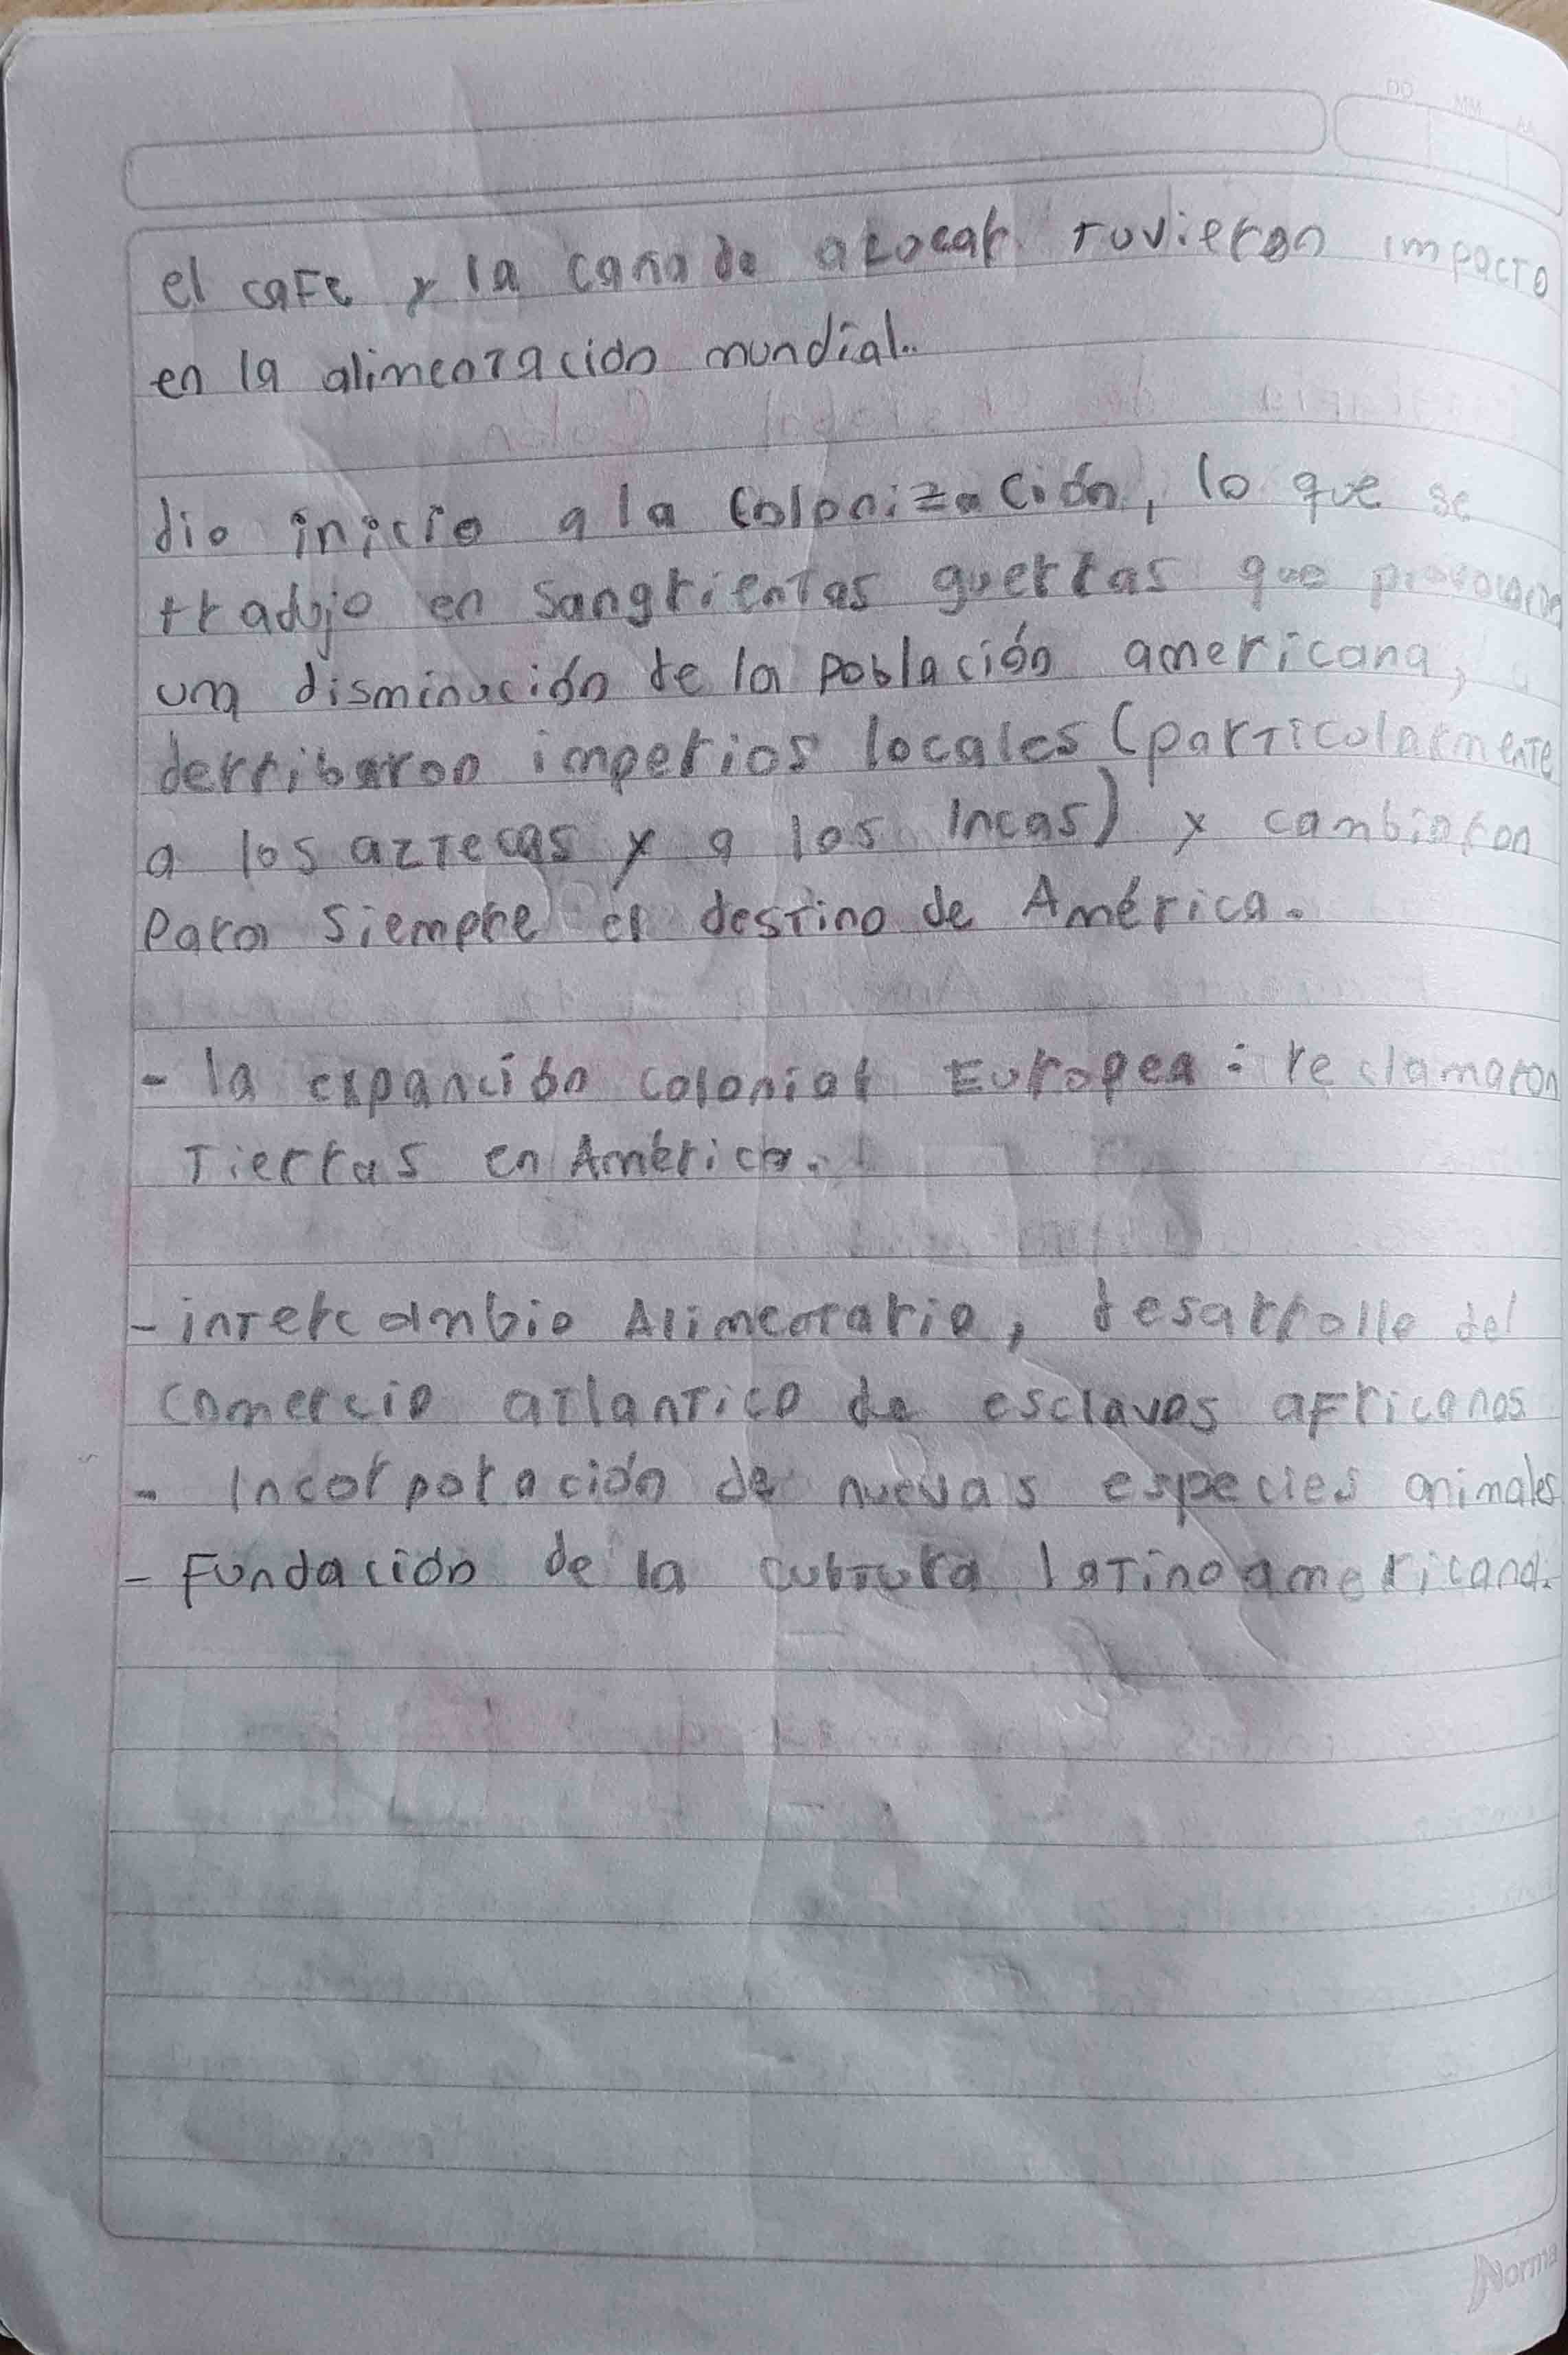 DD MM AA
el cafe y la caña de azocar tuvieron impacto
en la alimentación mundial..
dio inicio a la Colonización, lo que se
tradujo en sangrientas guerras que provocaron
una disminución de la población americana,
derribaron imperios locales (particolarmente
a los aztecas y a los Incas) y cambiaron
para siempre el destino de América.
- la expanción colonial Europea: reclamaron
Tierras en América.
- intercambio Alimentario, desarrollo del
comercio atlantico de esclavos africanos
- Incorporación de nuevas especies animales
- Fundación de la cultura latinoamericana.
Norma